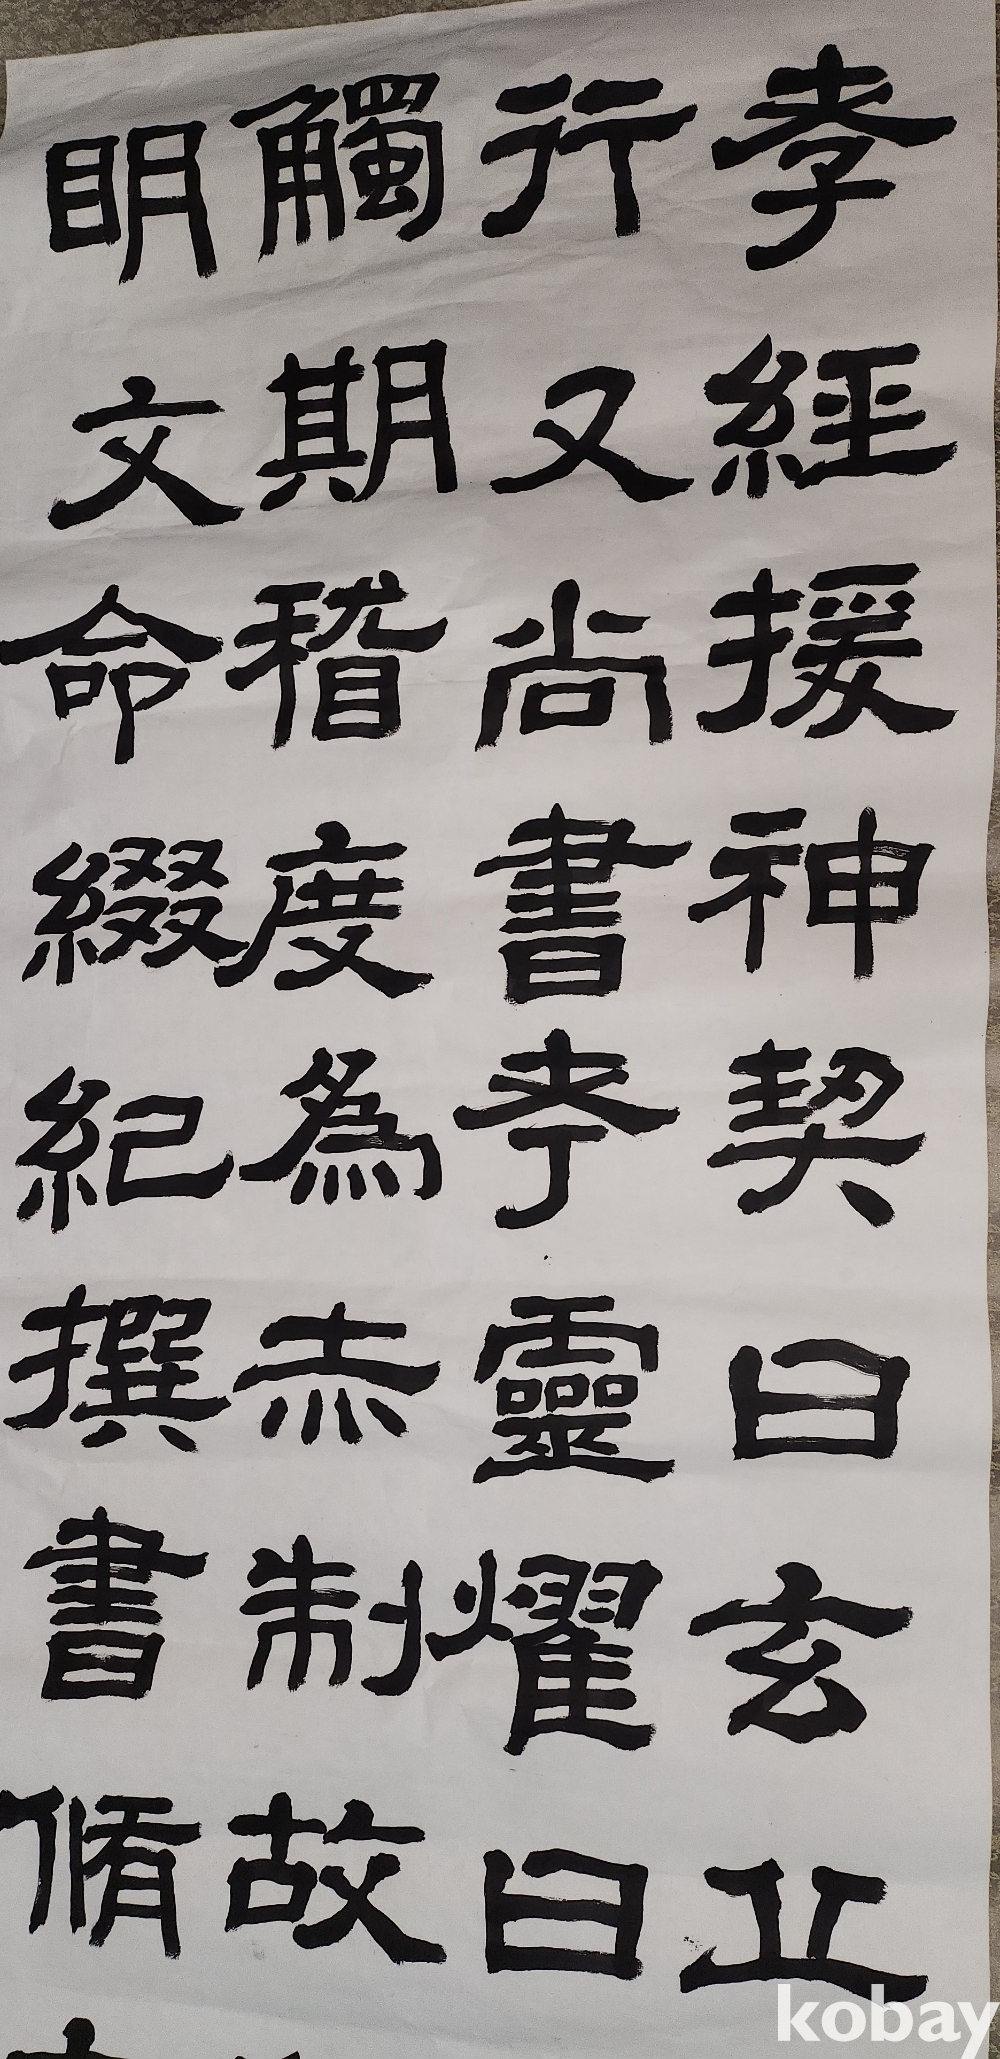 孝經援神契曰玄丘
行又尚書考靈耀曰
觸期稽度為赤制故
明文命綴紀撰書脩
kobay